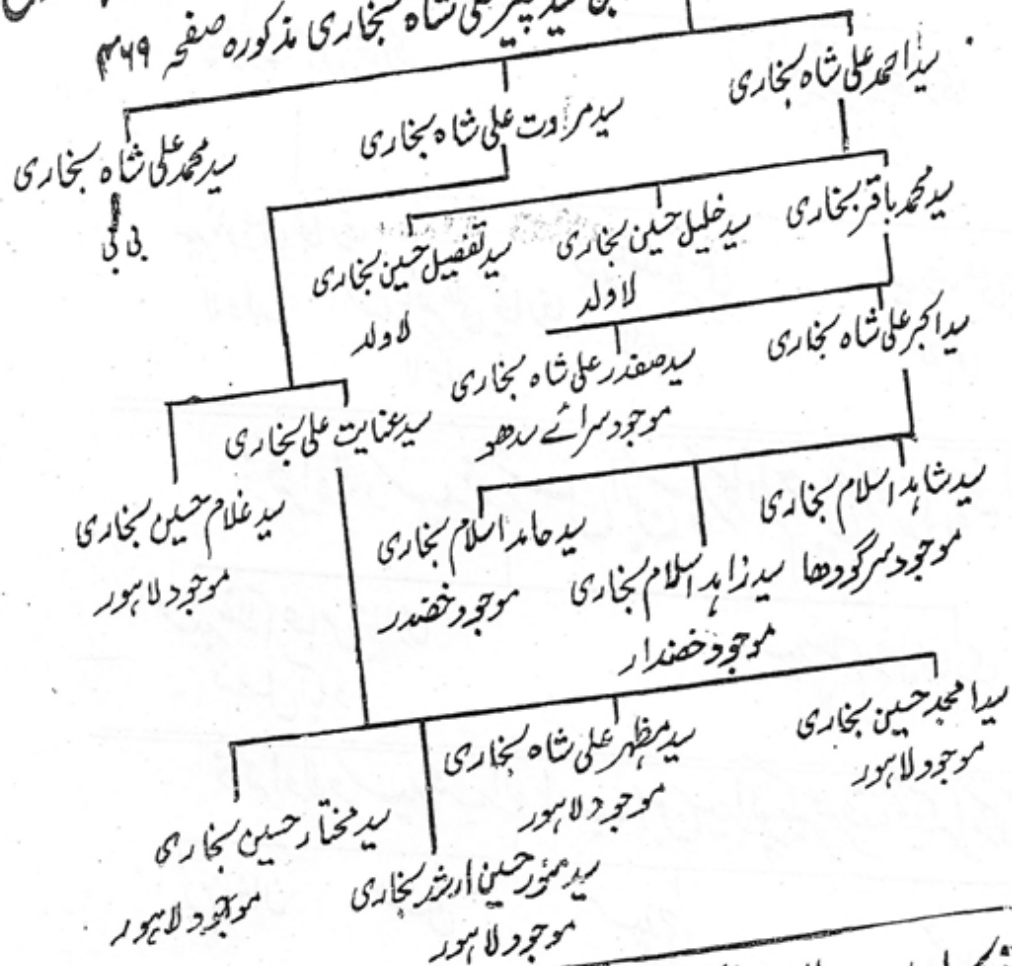 شاہ بخاری مذکورہ صفحہ ۴۶۹
سید احمد علی شاہ بخاری
سید مروت علی شاہ بخاری
سید محمد علی شاہ بخاری
بی بی
سید محمد باقر بخاری
سید خلیل حسین بخاری
لا ولد
سید تفضیل حسین بخاری
لا ولد
سید اکبر علی شاہ بخاری
سید صفدر علی شاہ بخاری
موجود سرائے سدھو
سید عنایت علی بخاری
سید غلام حسین بخاری
موجود لاہور
سید شاہد اسلام بخاری
موجود سرگودھا
سید زاہد اسلام بخاری
موجود خضدار
سید حامد اسلام بخاری
موجود خضدر
سید امجد حسین بخاری
موجود لاہور
سید مظہر علی شاہ بخاری
موجود لاہور
سید حسین ارشد بخاری
موجود لاہور
سید مختار حسین بخاری
موجود لاہور